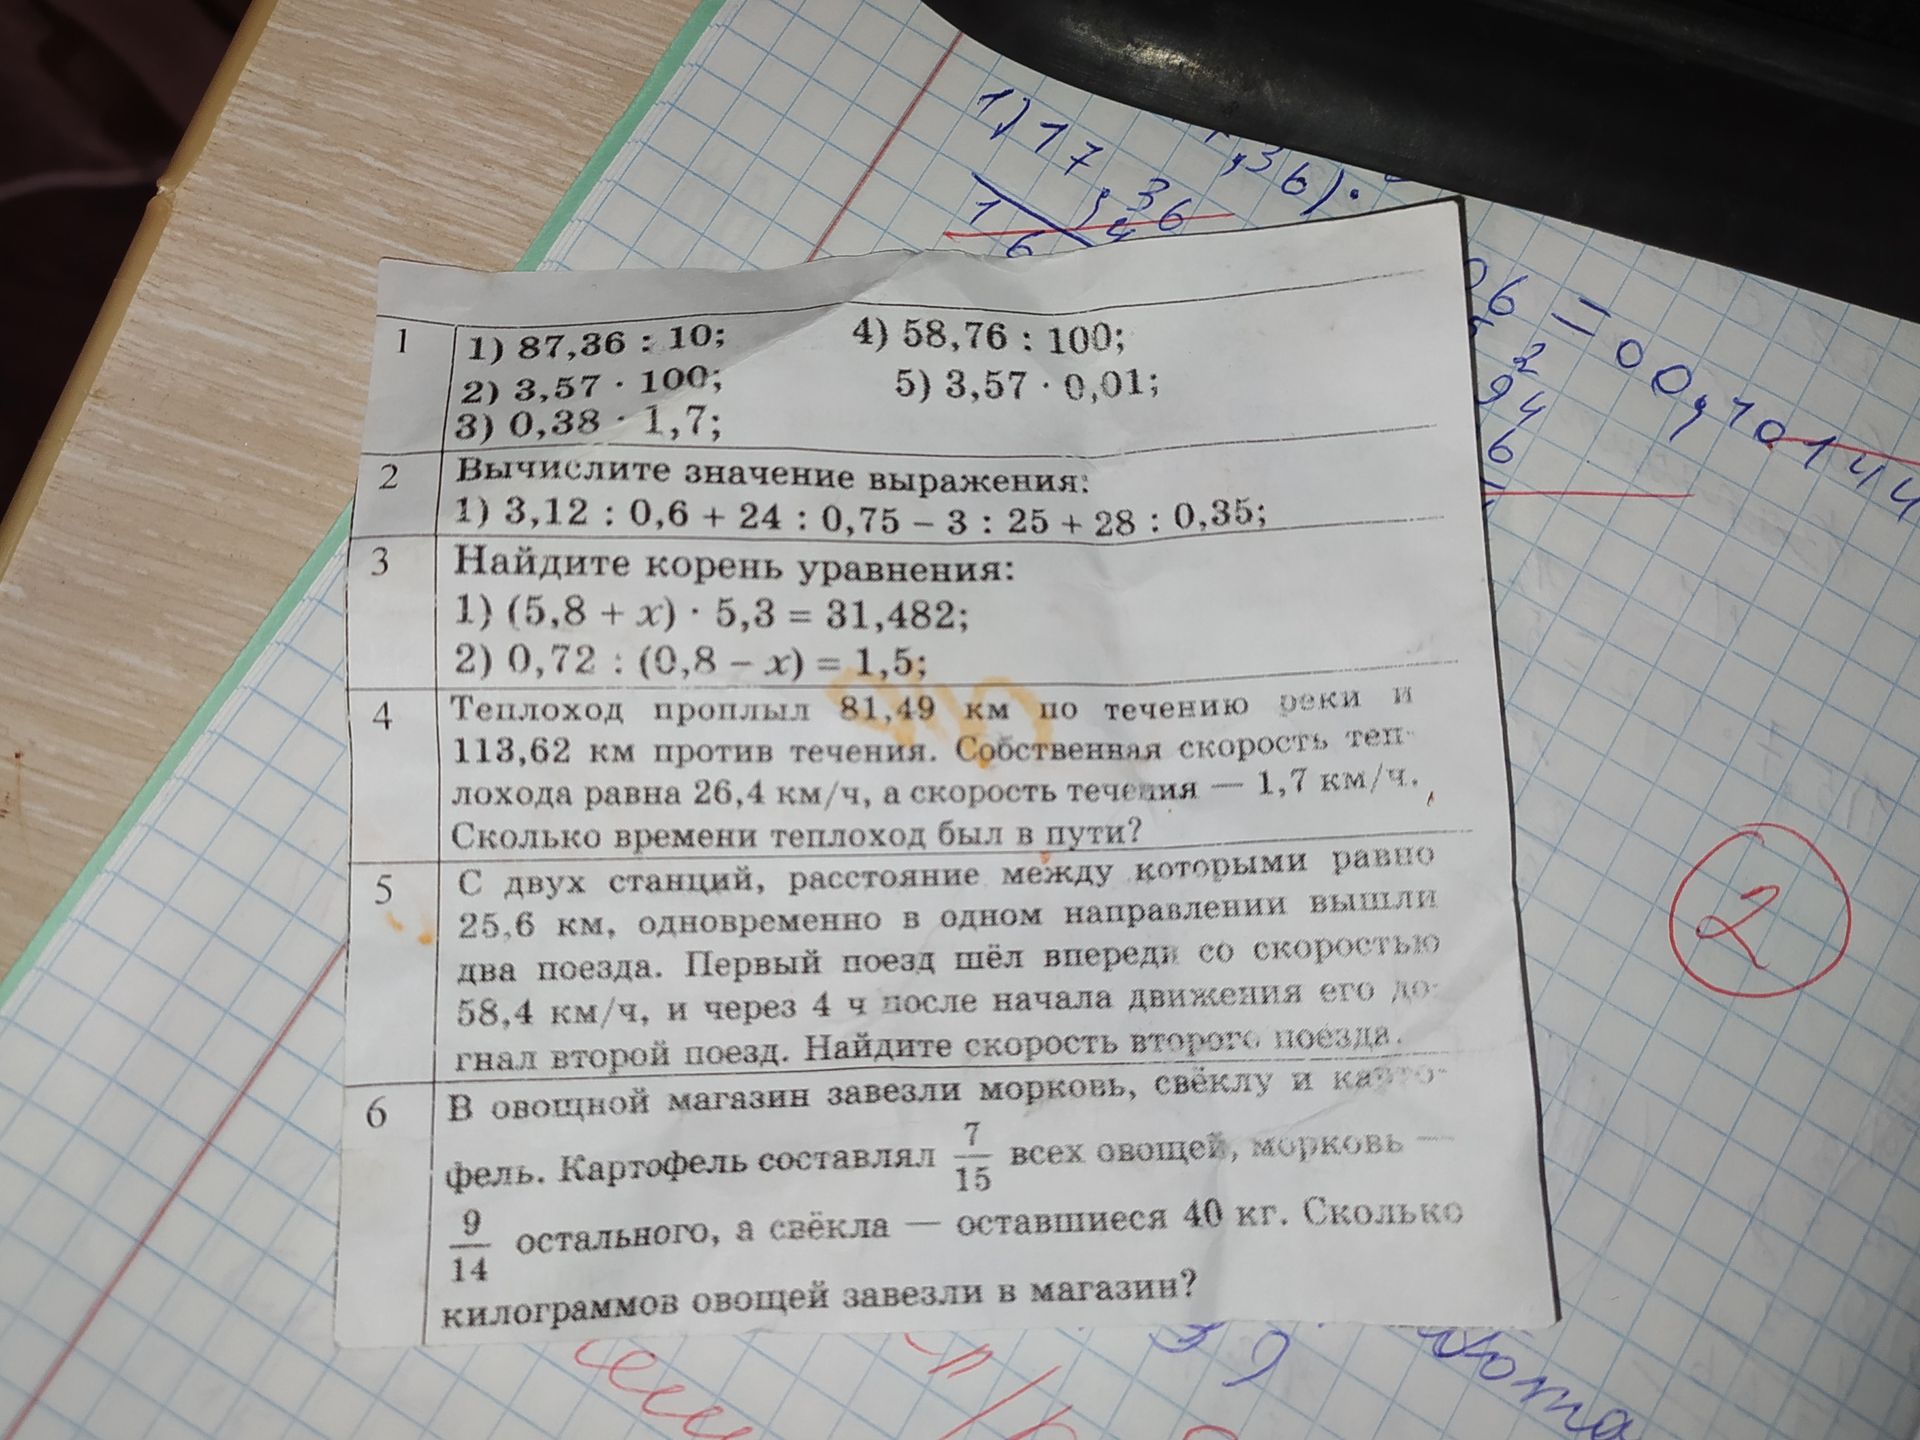 1) 17,36
1 6 4
,36).
06 = 00,10144
2
94
6
1
1) 87,36 : 10; 4) 58,76 : 100;
2) 3,57 · 100; 5) 3,57 · 0,01;
3) 0,38 · 1,7;
2
Вычислите значение выражения:
1) 3,12 : 0,6 + 24 : 0,75 – 3 : 25 + 28 : 0,35;
3
Найдите корень уравнения:
1) (5,8 + x) · 5,3 = 31,482;
2) 0,72 : (0,8 – x) = 1,5;
4
Теплоход проплыл 81,49 км по течению реки и
113,62 км против течения. Собственная скорость теп-
лохода равна 26,4 км/ч, а скорость течения — 1,7 км/ч.
Сколько времени теплоход был в пути?
5
С двух станций, расстояние между которыми равно
25,6 км, одновременно в одном направлении вышли
два поезда. Первый поезд шёл впереди со скоростью
58,4 км/ч, и через 4 ч после начала движения его до-
гнал второй поезд. Найдите скорость второго поезда.
6
В овощной магазин завезли морковь, свёклу и карто-
фель. Картофель составлял 7/15 всех овощей, морковь —
9/14 остального, а свёкла — оставшиеся 40 кг. Сколько
килограммов овощей завезли в магазин?
2